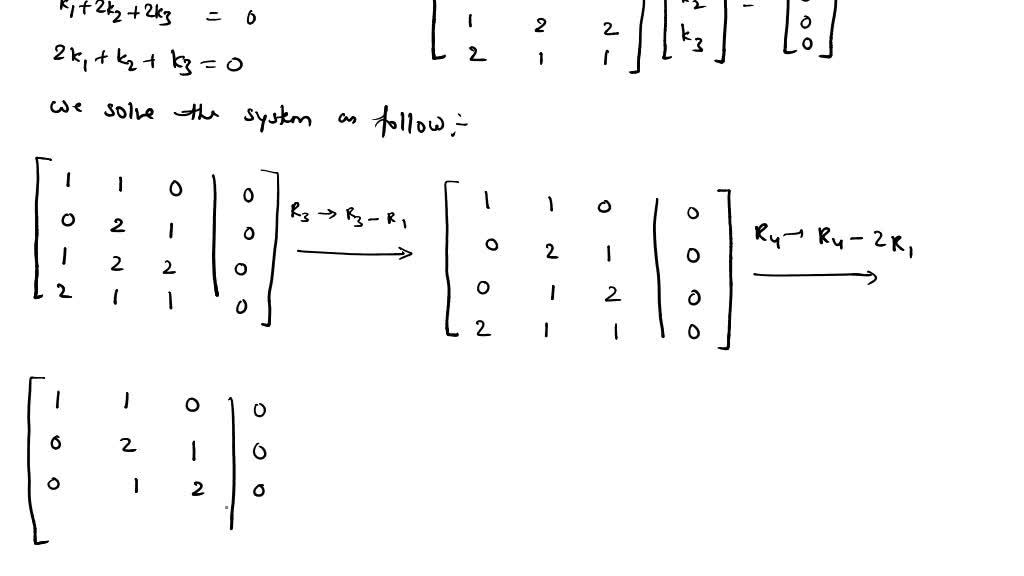 k₁+2k₂+2k₃ = 0
2k₁+k₂+k₃=0
1 2 2
2 1 1
k₂
k₃
=
0
0
we solve the system as follow:-
1 1 0 | 0
0 2 1 | 0
1 2 2 | 0
2 1 1 | 0
R₃→R₃-R₁
1 1 0 | 0
0 2 1 | 0
0 1 2 | 0
2 1 1 | 0
R₄→R₄-2R₁
1 1 0 | 0
0 2 1 | 0
0 1 2 | 0